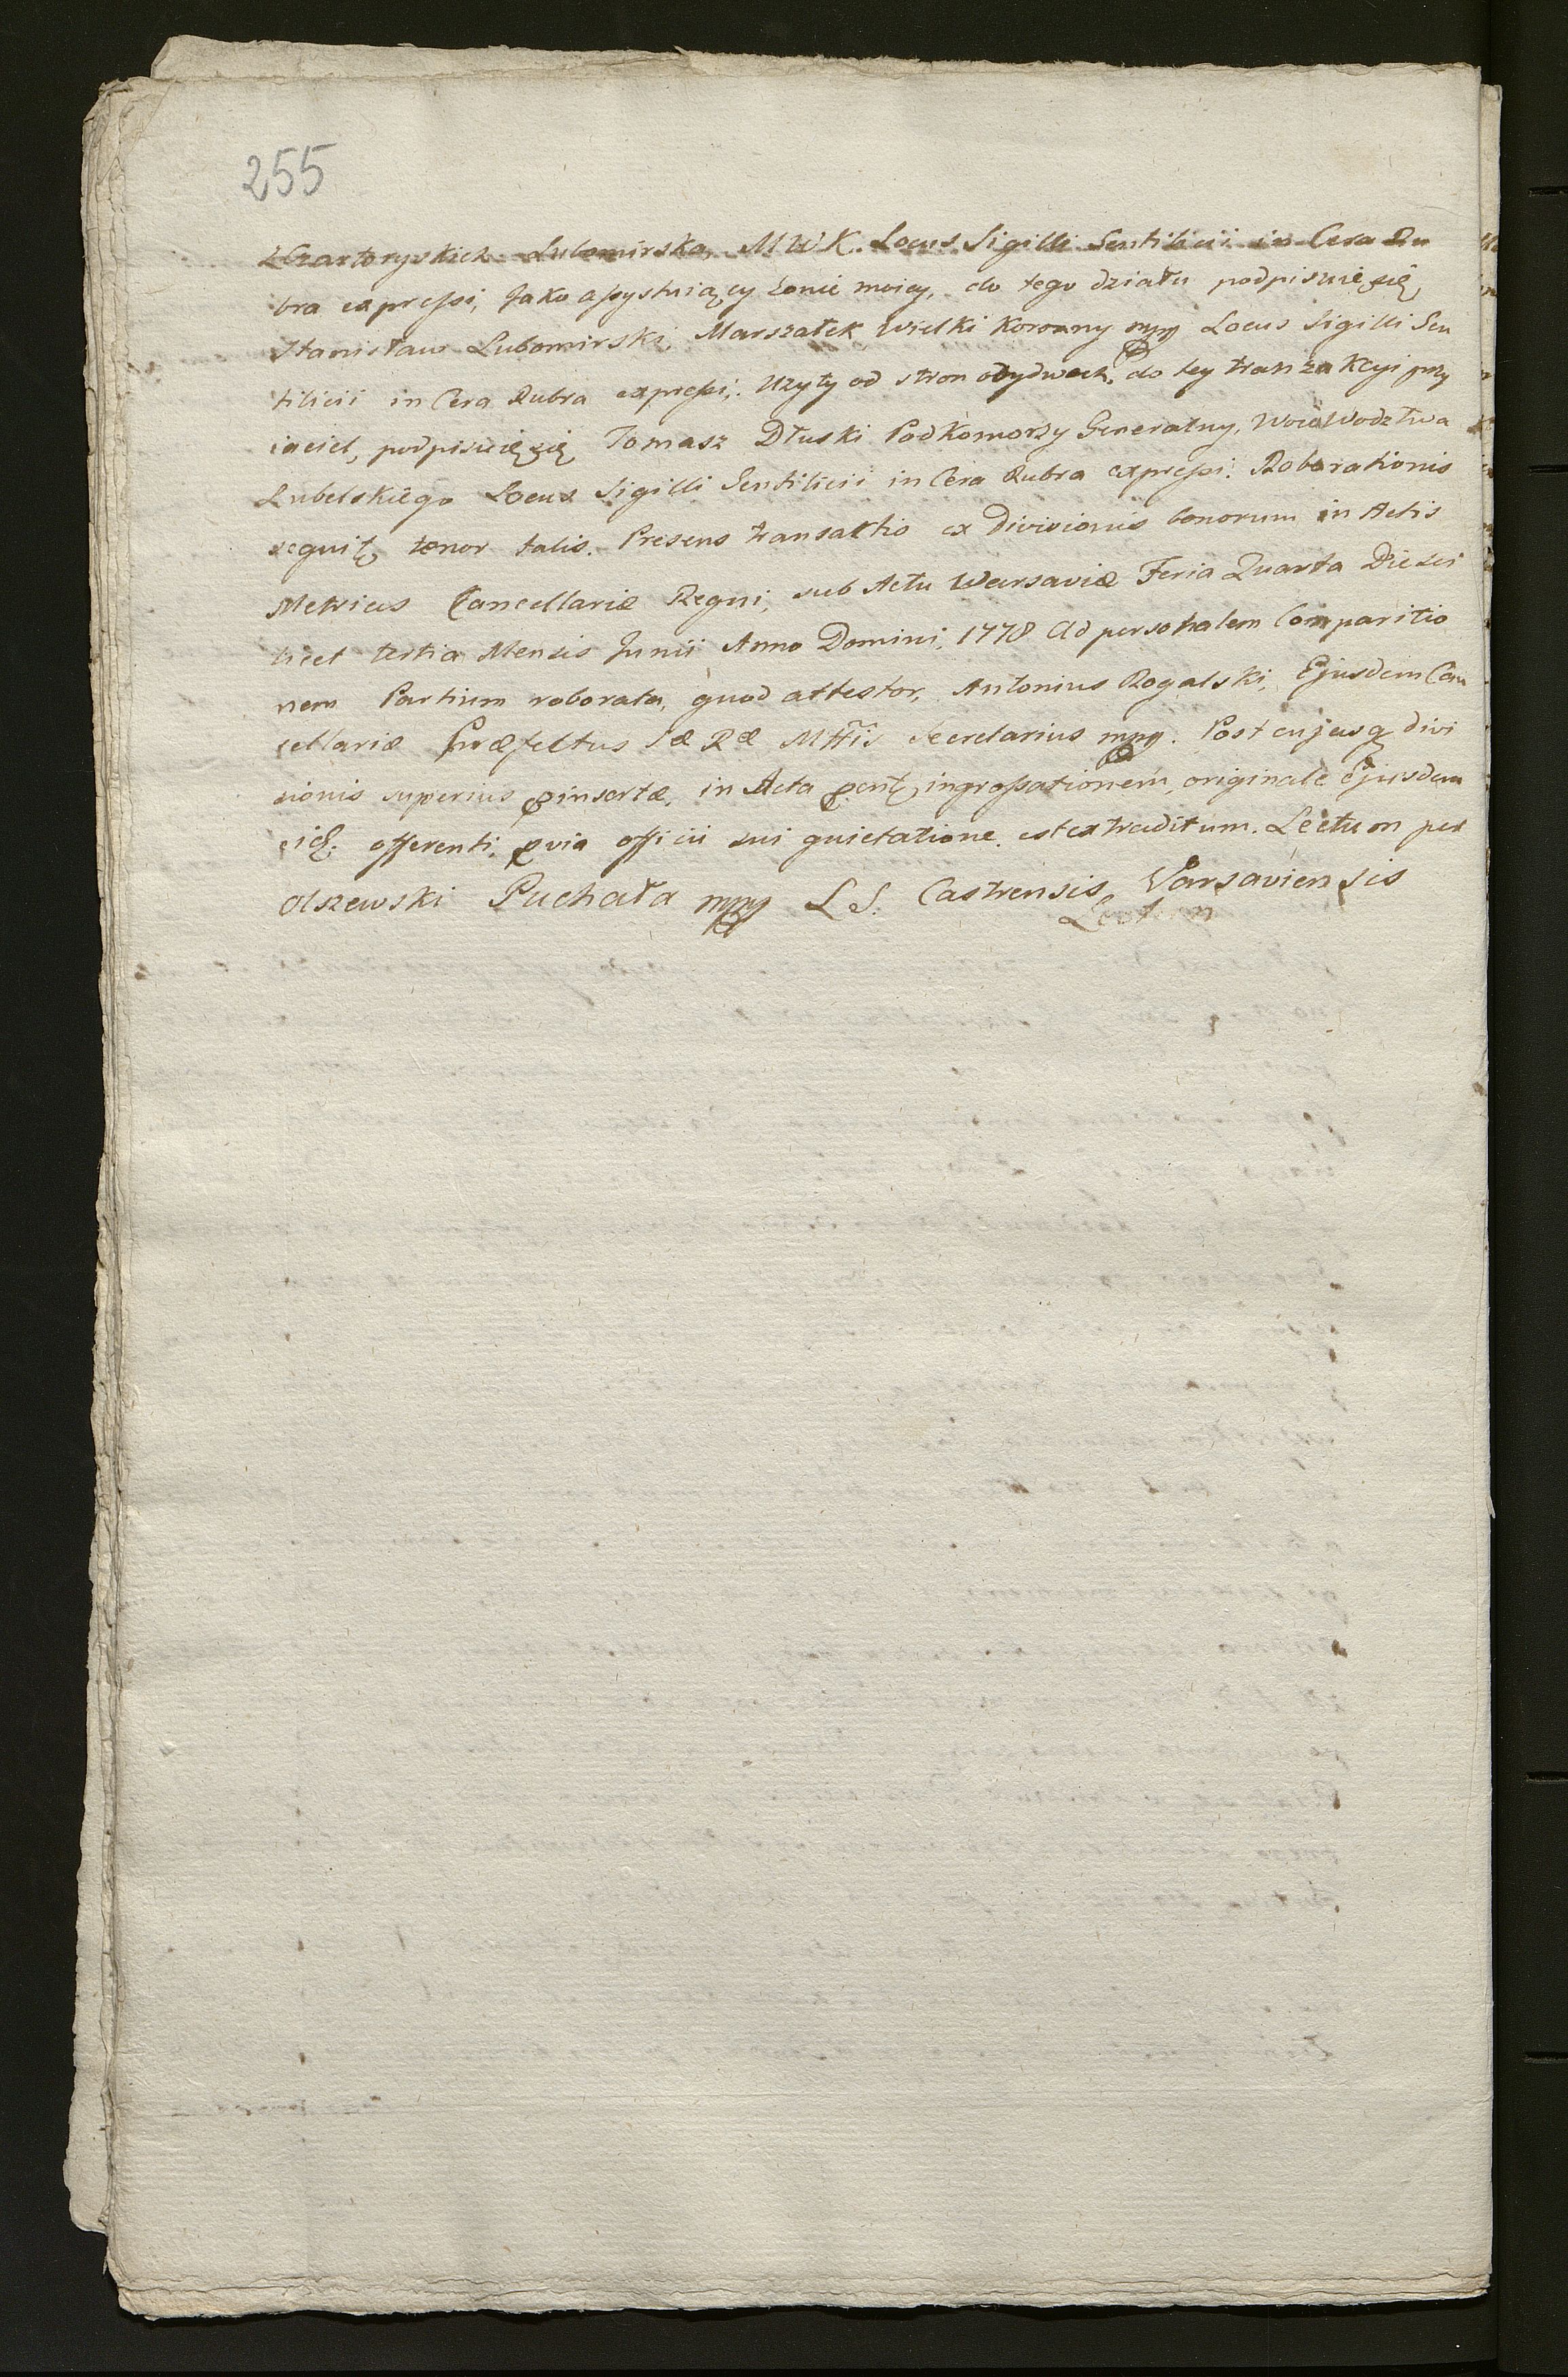 255
z Czartoryskich Lubomirska, M W K. Locus Sigilli Gentilicii in Cera Ru
bra expreſsi, Jako aſsystuiący żonie moiey, do tego działu podpisuię się,
Stanisław Lubomirski, Marszałek Wielki Koronny mpp Locus Sigilli Gen
tilicii in Cera Rubra expreſsi. Użyty od stron obydwoch, do tey tranzakcyi przy
iaciel, podpisuię się Tomasz Dłuski Podkomorzy Generalny, Woiewodztwa
Lubelskiego Locus Sigilli Gentilicii in Cera Rubra expreſsi. Roborationis
sequit, tenor talis. Presens transaktio ex Divisionis bonorum in Actis
Metrices Cancellariæ Regni, sub Actu Warsaviæ Feria Quarta Die sci
licet tertia Mensis Junii Anno Domini, 1778 Ad personalem Comparitio
nem Partium roborata, quod attestor, Antonius Rogalski, Ejusdem Can
cellariæ Præfektus Sæ Ræ Mttis Secretarius mpp. Post cujusq divi
sionis superius insertæ, in Acta pent, ingroſsationem, originale Ejusdem
eid. offerenti, pvia officii sui quietatione. est extraditum. Lectum per
Olszewski Puchała mpp L S. Castrensis, Varsaviensis
Lectum